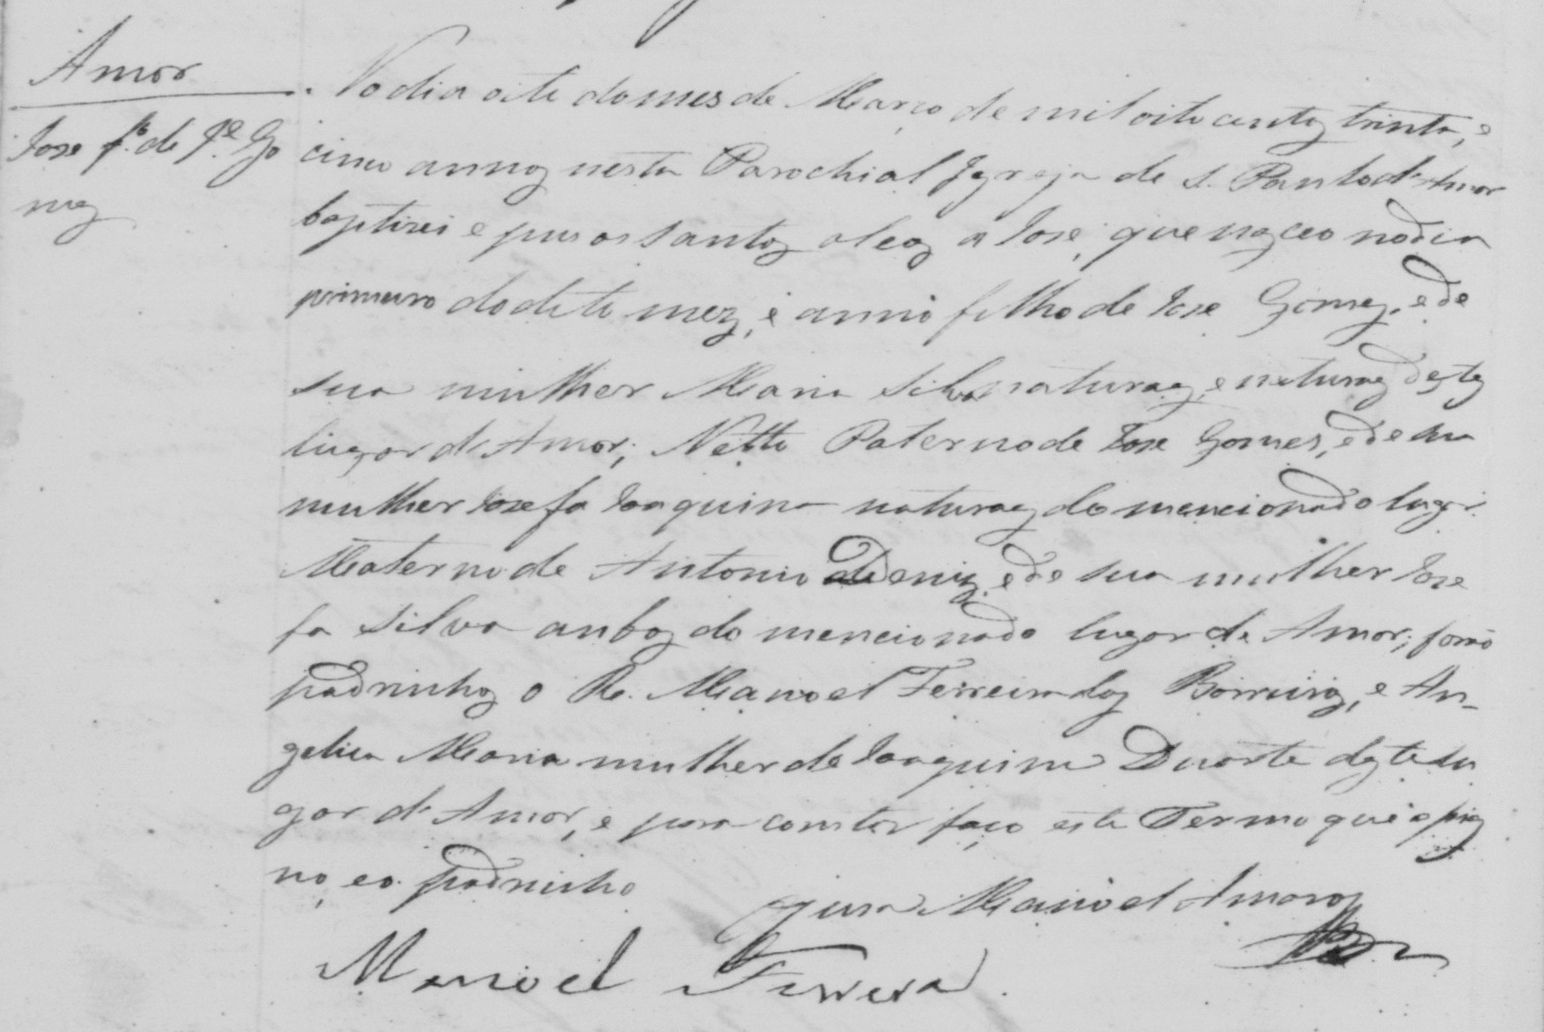 Amor
Jose fº de Jº. Go
mes
No dia oito do mes de Março de mil oito centos trinta, e
cinco annos nesta Parochial Igreja de S. Paulo d'Amor
baptizei e pus os santos oleos a Jose, que nasceo no dia
primeiro do dito mez, e anno filho de Jose Gomes, e de
sua mulher Maria Silva naturaes, e naturaes destes
lugar d'Amor; Netto Paterno de Jose Gomes, e de sua
mulher Josefa Joaquina naturaes do mencionado lugar
Materno de Antonio Deniz, e de sua mulher Jose
fa Silva anbos do mencionado lugar de Amor; forão
padrinhos o R. Manoel Ferreira dos Barreiros, e An-
gelica Maria mulher de Joaquim Duarte deste lu
gar d'Amor, e para constar faço este Termo que asig
no, e o padrinho
Cura Manoel Amaro
Manoel Ferrera